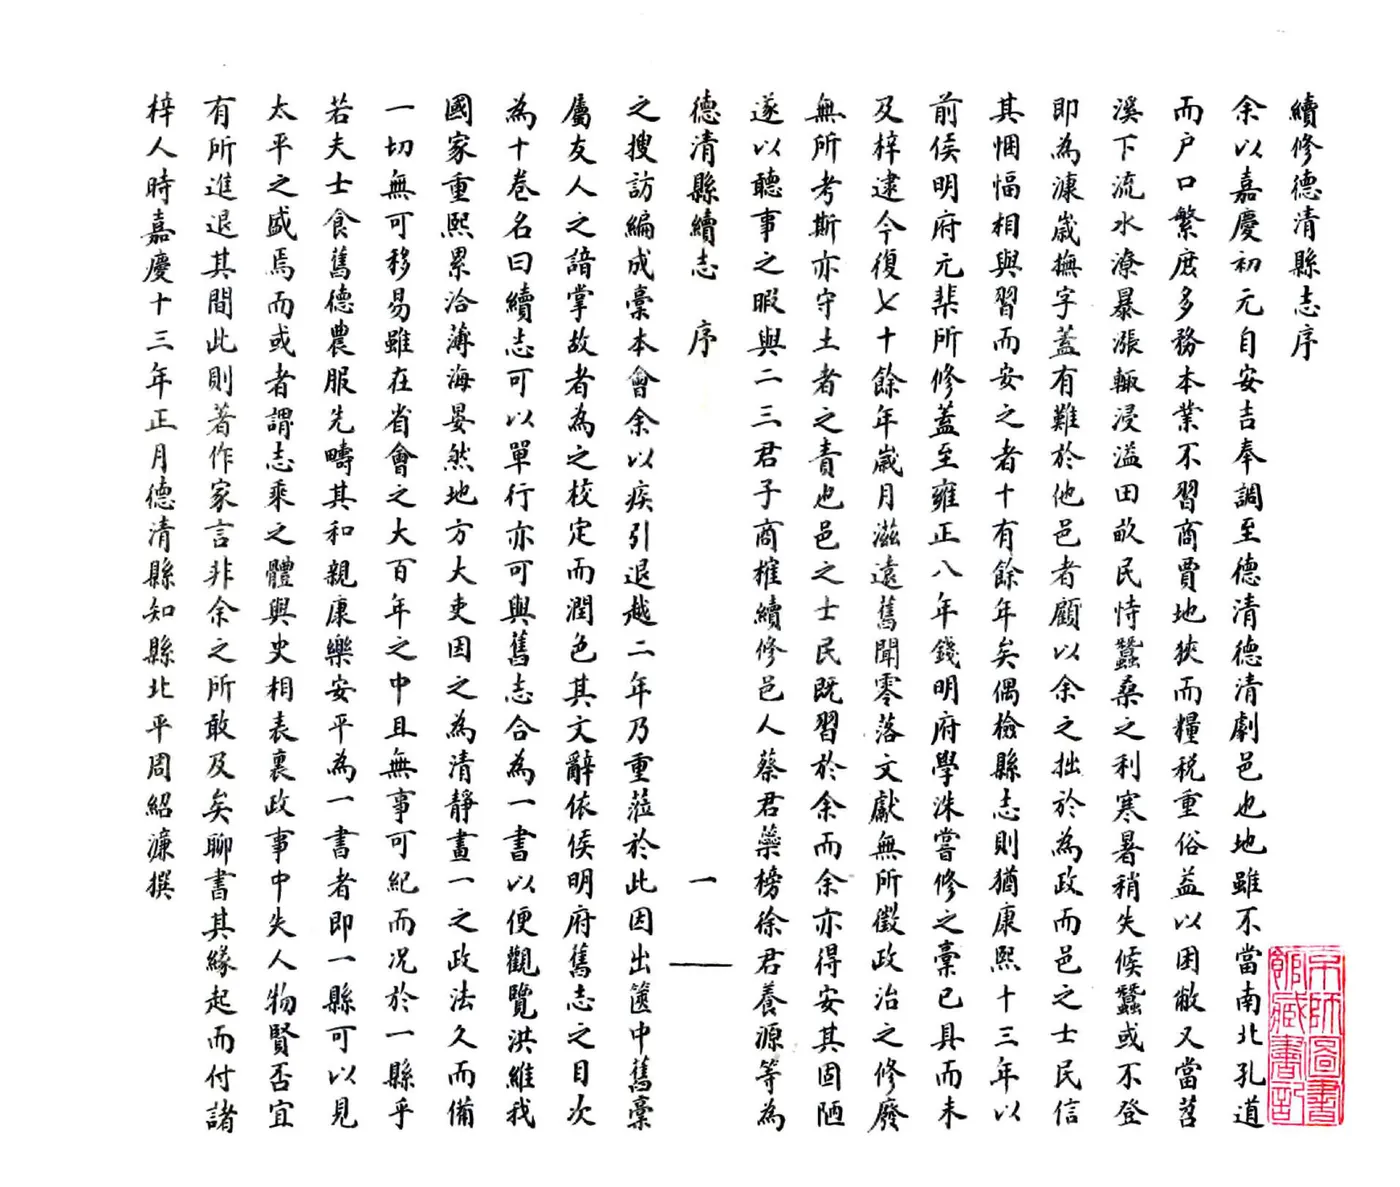 續修德清縣志序
余以嘉慶初元自安吉奉調至德清德清劇邑也地雖不當南北孔道
而户口繁庶多務本業不習商賈地狹而糧税重俗益以困敝又當苕
溪下流水潦暴漲輒浸溢田畝民恃蠶桑之利寒暑稍失候蠶或不登
即為漮嵗撫字蓋有難於他邑者顧以余之拙於為政而邑之士民信
其悃愊相與習而安之者十有餘年矣偶檢縣志則猶康熙十三年以
前侯明府元棐所修蓋至雍正八年錢明府學洙嘗修之稾已具而未
及梓逮今復七十餘年嵗月滋遠舊聞零落文獻無所徵政治之修廢
無所考斯亦守土者之責也邑之士民既習於余而余亦得安其固陋
遂以聽事之暇與二三君子商搉續修邑人蔡君藥榜徐君養源等為
德清縣續志 序 一
之搜訪編成稾本會余以疾引退越二年乃重蒞於此因出篋中舊稾
屬友人之諳掌故者為之校定而潤色其文辭依侯明府舊志之目次
為十卷名曰續志可以單行亦可與舊志合為一書以便觀覽洪維我
國家重熙累洽薄海晏然地方大吏因之為清靜畫一之政法久而備
一切無可移易雖在省會之大百年之中且無事可紀而况於一縣乎
若夫士食舊德農服先疇其和親康樂安平為一書者即一縣可以見
太平之盛焉而或者謂志乘之體與史相表裏政事中失人物賢否宜
有所進退其間此則著作家言非余之所敢及矣聊書其緣起而付諸
梓人時嘉慶十三年正月德清縣知縣北平周紹濂撰
京師圖書
館藏書記